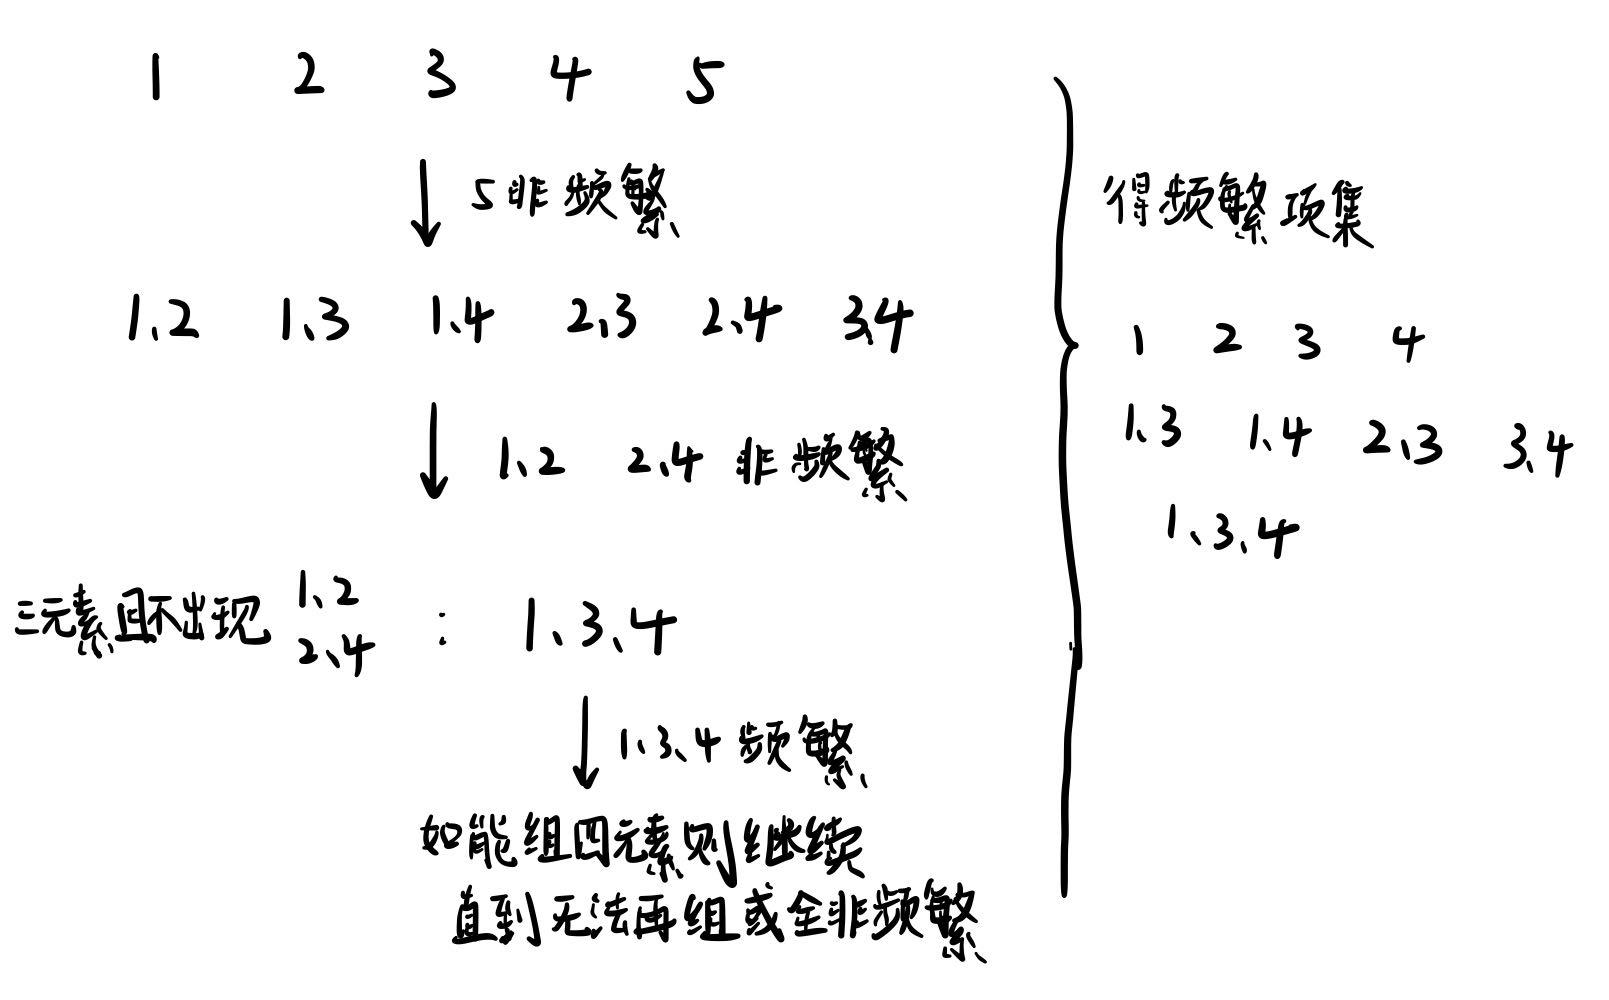 1 2 3 4 5
5非频繁
1、2 1、3 1、4 2、3 2、4 3、4
1、2 2、4 非频繁
三元素且不出现 1、2
2、4 : 1、3、4
1、3、4 频繁
如能组四元素则继续
直到无法再组或全非频繁
得频繁项集
1 2 3 4
1、3 1、4 2、3 3、4
1、3、4